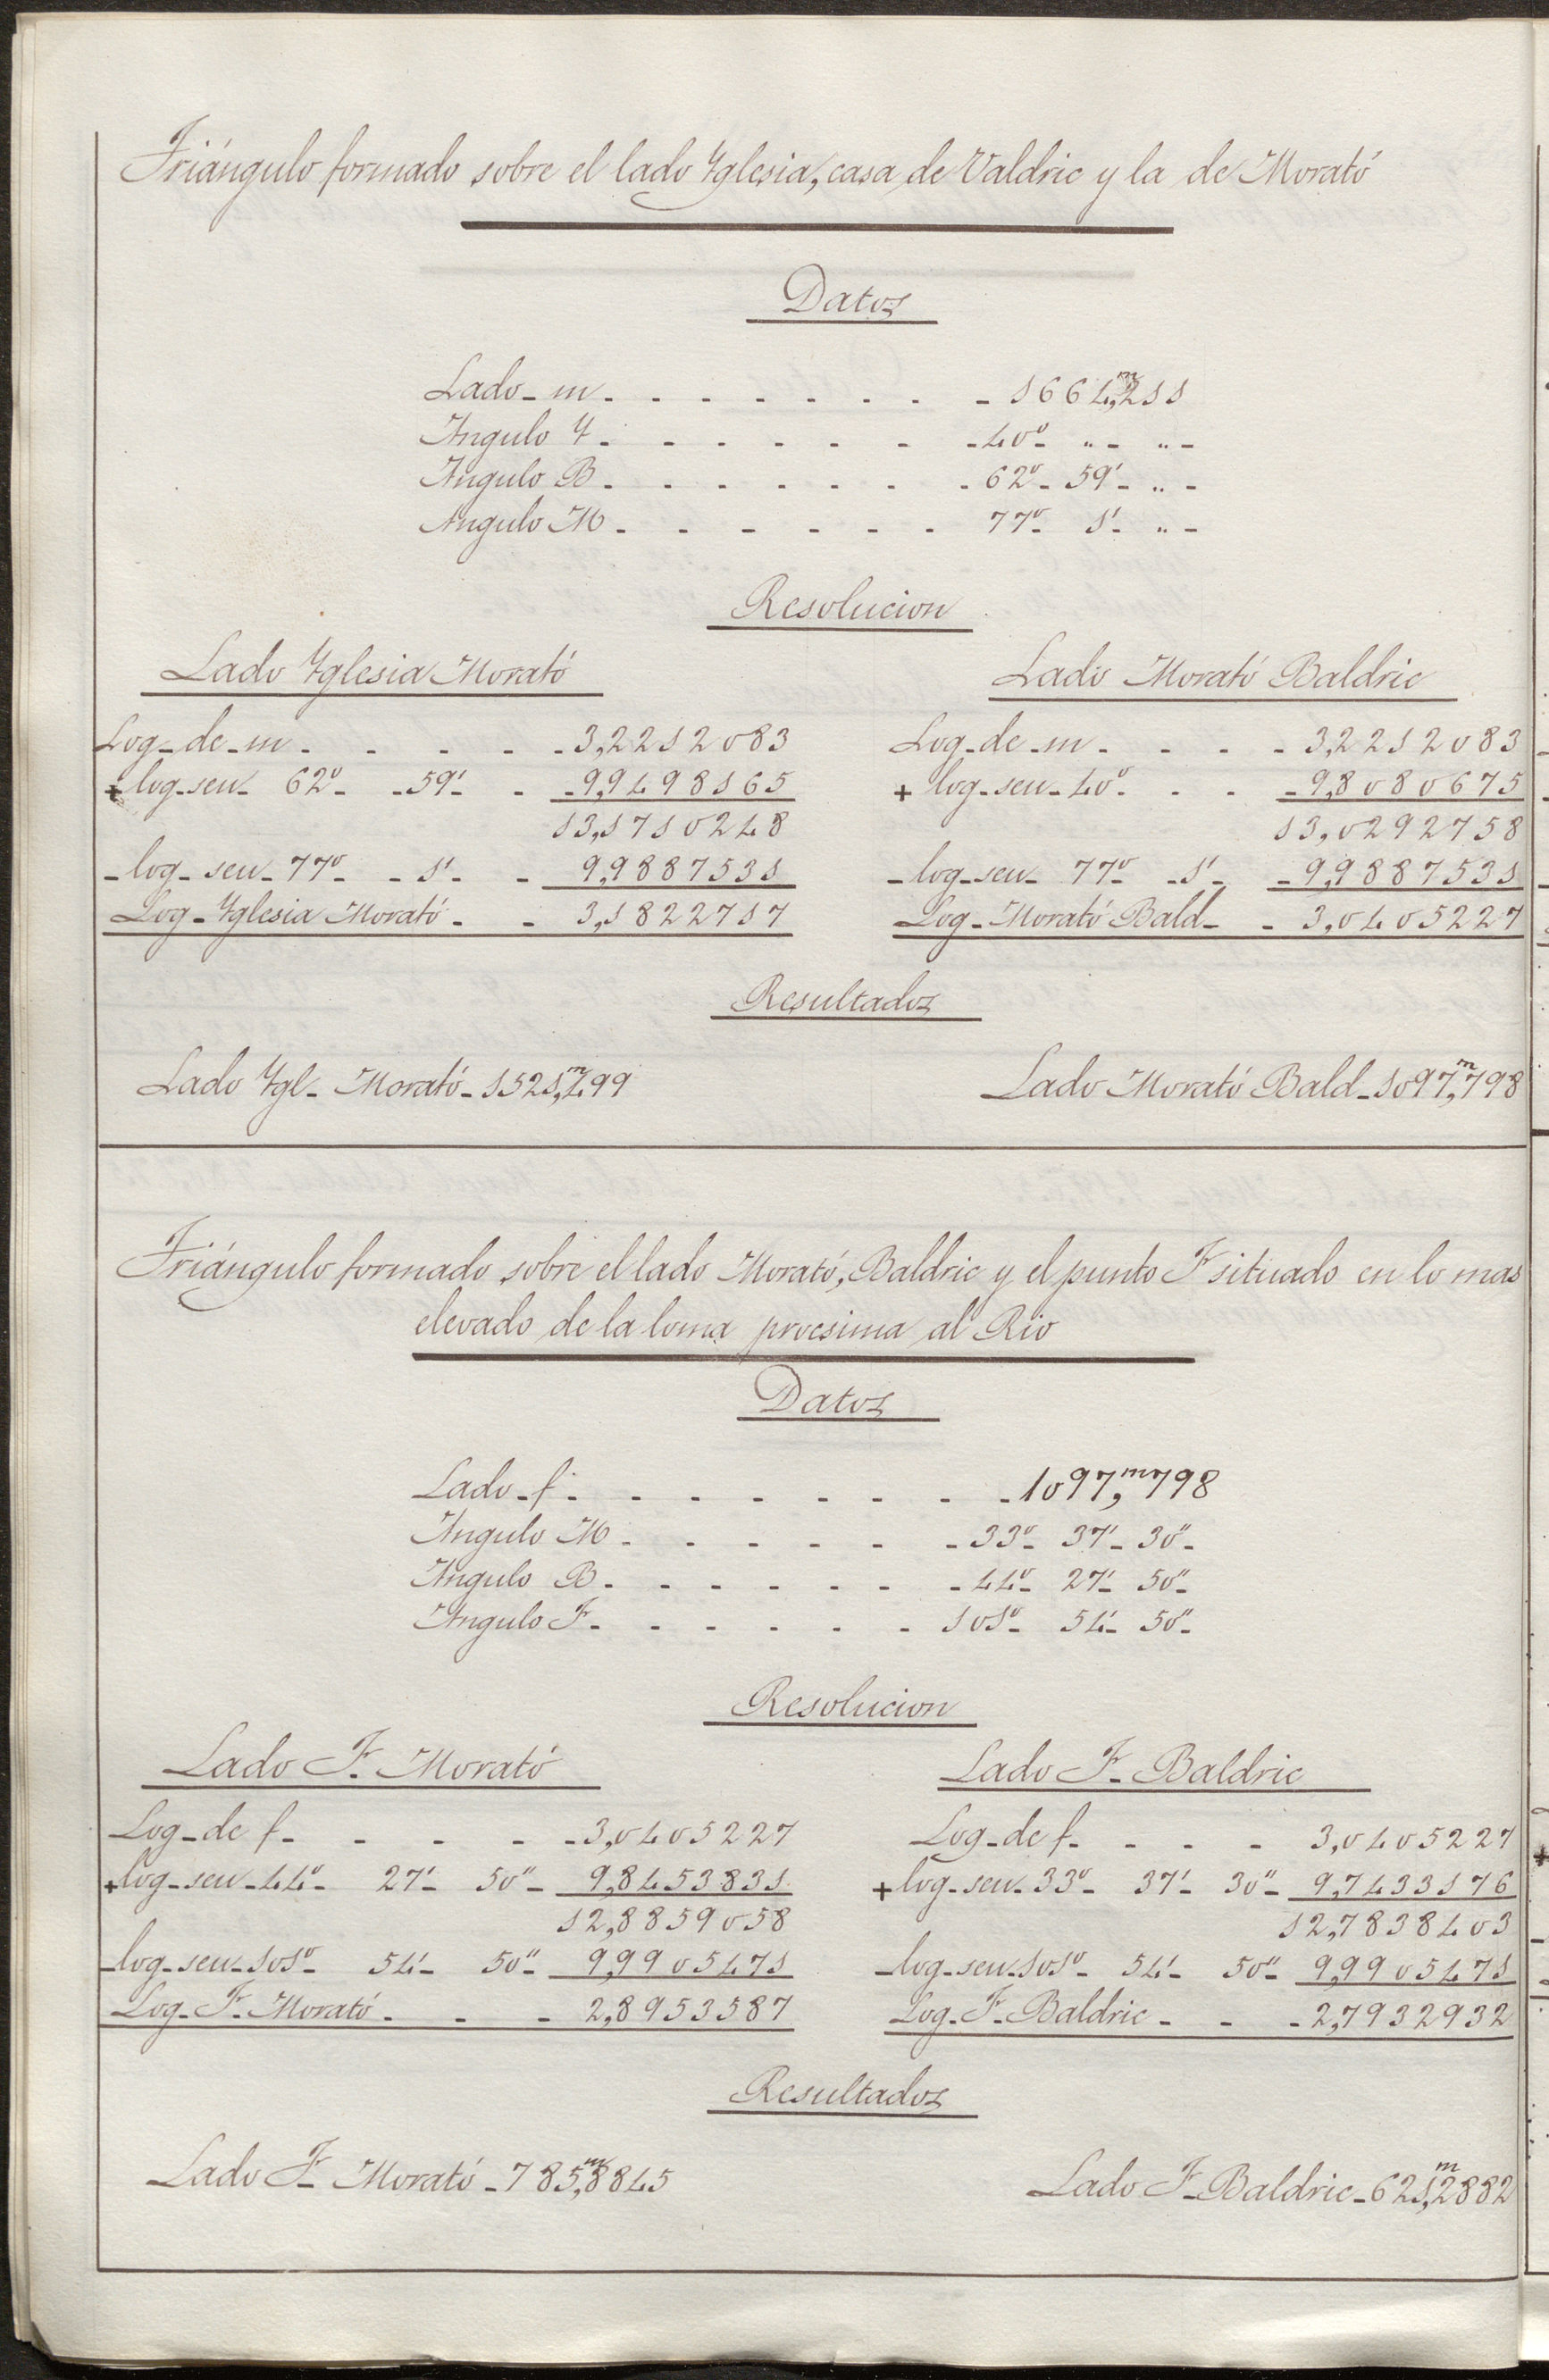 Triángulo formado sobre el lado Yglesia, casa de Valdric y la de Morató
Datos
Lado - m - - - - - - - 1664,ᵐ211
Angulo Y - - - - - - - 40° - „ - „ -
Angulo B - - - - - - - 62° - 59' - „ -
Angulo M - - - - - - 77° - 1' - „ -
Resolucion
Lado Yglesia Morató
Log - de - m - - - - - 3,2212083
+ log - sen - 62° - - 59' - - 9,9498165
13,1710248
- log - sen - 77° - - 1' - - 9,9887531
Log - Yglesia Morató - - 3,1822717
Lado Morató Baldric
Log - de - m - - - - 3,2212083
+ log - sen - 40° - - - 9,8080675
13,0292758
- log - sen - 77° - - 1' - - 9,9887531
Log - Morató Bald - - 3,0405227
Resultados
Lado Ygl - Morató - 1521,ᵐ499
Lado Morató Bald - 1097,ᵐ798
Triángulo formado sobre el lado Morató, Baldric y el punto F situado en lo mas
elevado de la loma procsima al Rio
Datos
Lado - f - - - - - - - - 1097,ᵐ798
Angulo M - - - - - - - 33° - 37' - 30" -
Angulo B - - - - - - - 44° - 27' - 50" -
Angulo F - - - - - - 101° - 54' - 50" -
Resolucion
Lado F - Morató
Log - de f - - - - - 3,0405227
+ log - sen - 44° - 27' - 50" - 9,8453831
12,8859058
- log - sen - 101° - 54' - 50" - 9,9905471
Log - F - Morató - - - 2,8953587
Lado F - Baldric
Log - de f - - - - 3,0405227
+ log - sen - 33° - 37' - 30" - 9,7433176
12,7838403
- log - sen - 101° - 54' - 50" - 9,9905471
Log - F - Baldric - - - 2,7932932
Resultados
Lado F - Morató - 785,ᵐ8845
Lado F - Baldric - 621,ᵐ2882